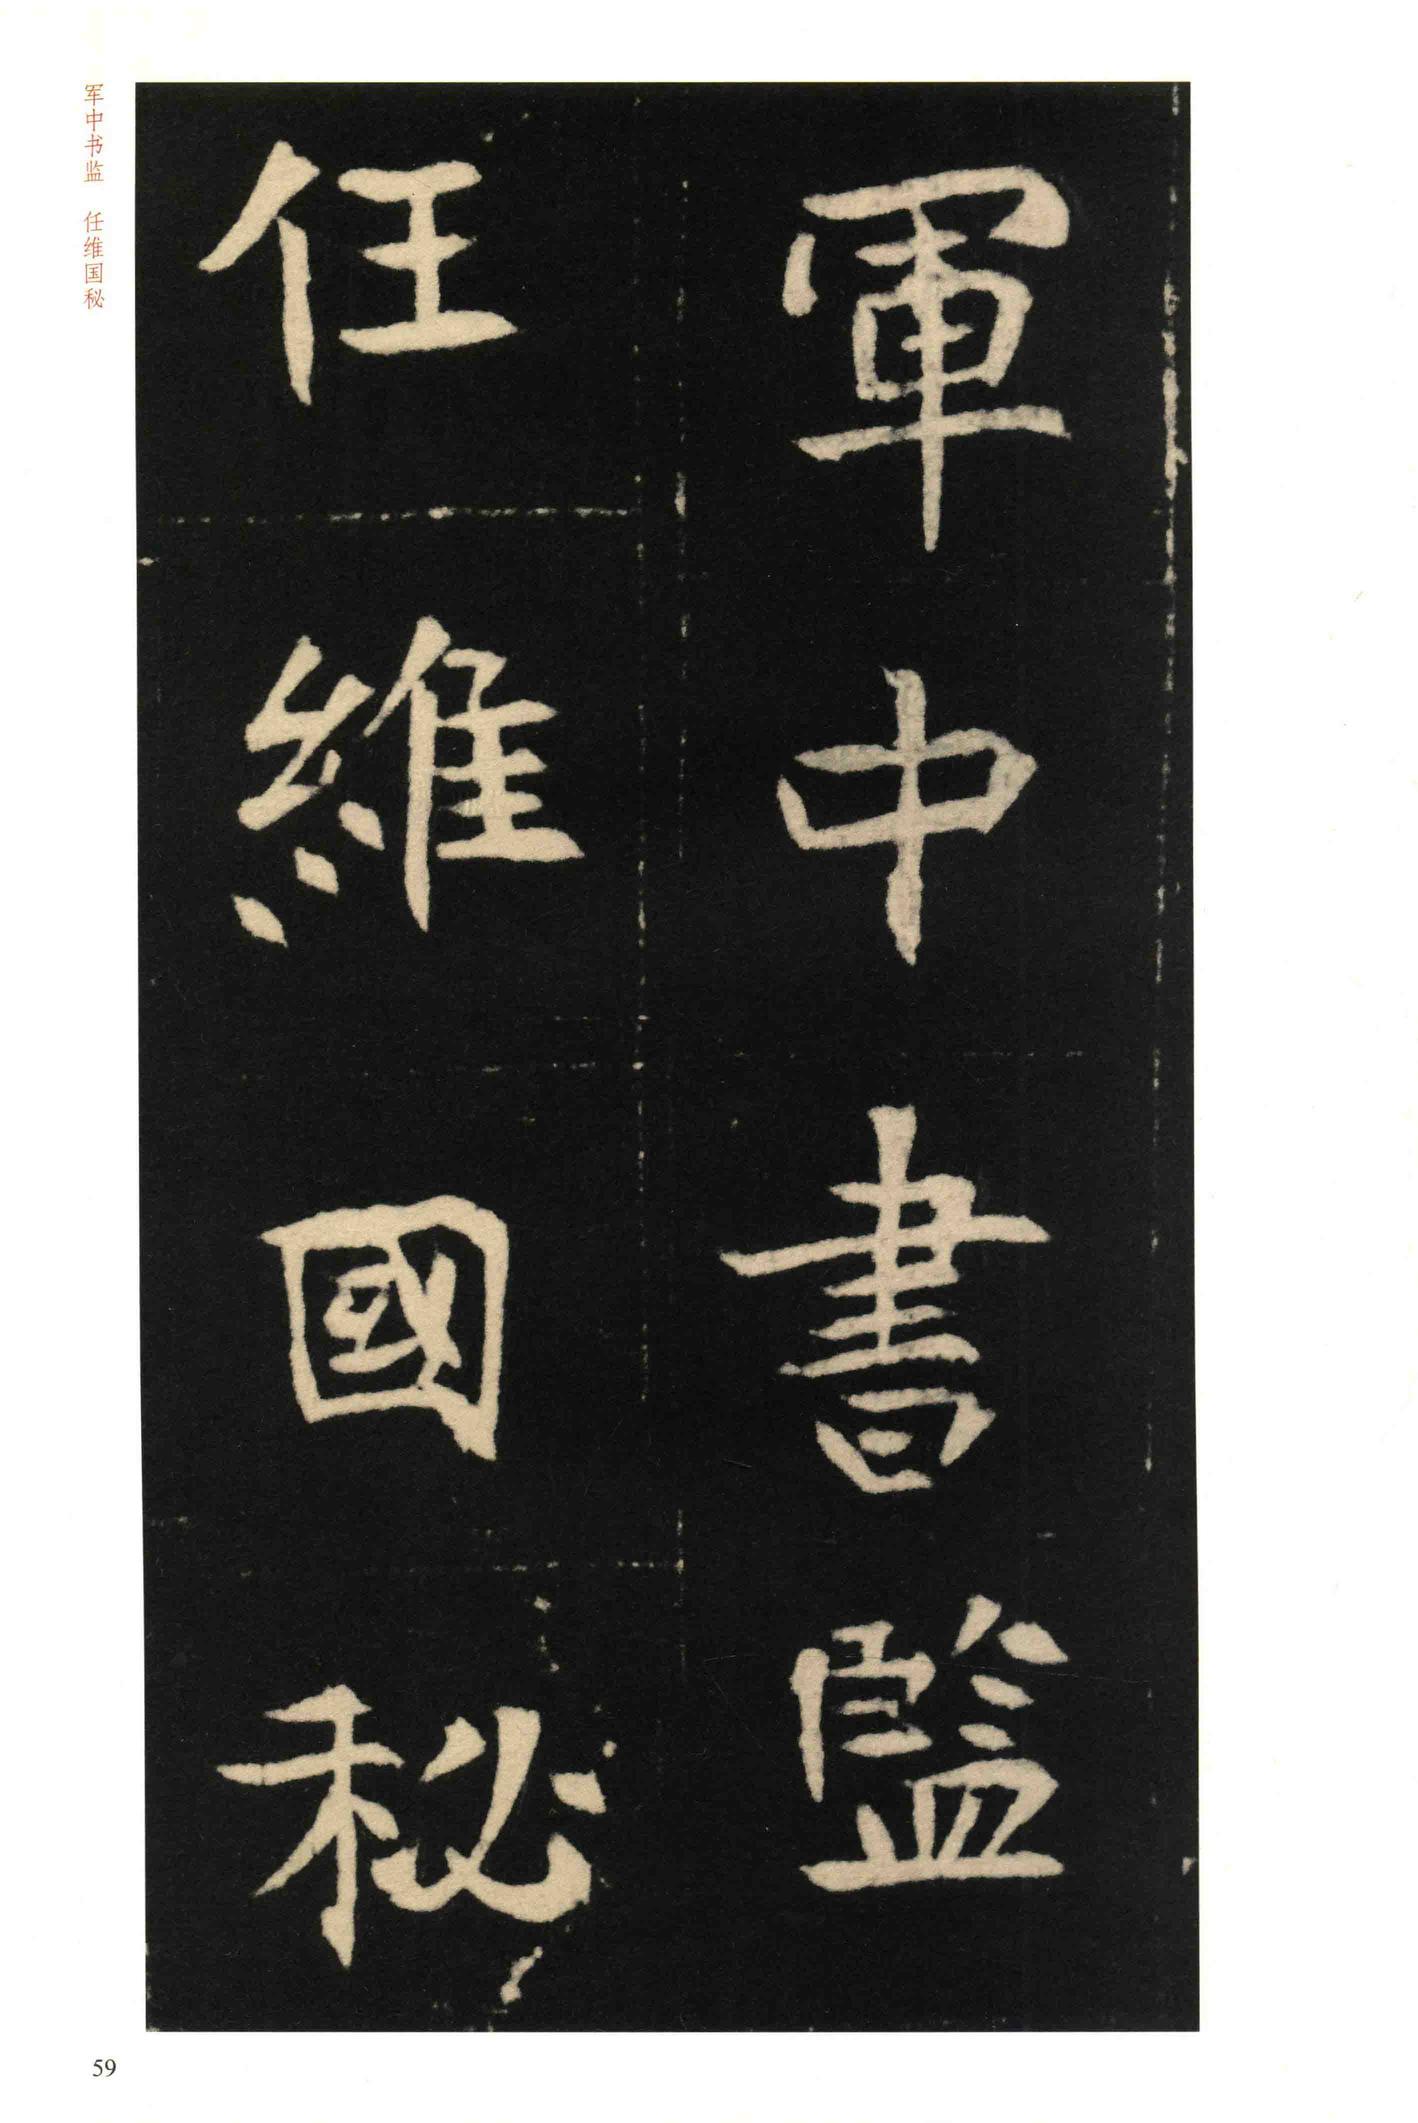 軍中書監
任維國秘
军中书监 任维国秘
59